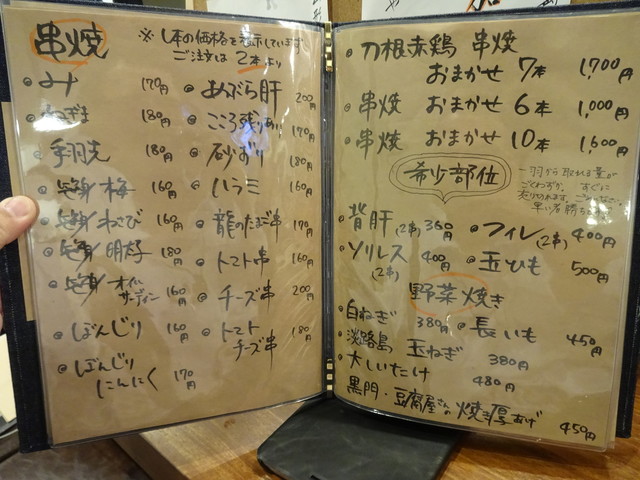 串焼
※ 1本の価格を表示しています
ご注文は 2本より
み 170円
ねぎま 180円
手羽先 180円
梅 160円
わさび 160円
明太子 180円
オイルサーディン 160円
ぼんじり 160円
ぼんじり
にんにく 170円
あぶら肝 200円
こころ残りあり 170円
砂ずり 180円
ハラミ 160円
龍のたまご串 170円
トマト串 160円
チーズ串 200円
トマト
チーズ串 180円
刀根赤鶏 串焼
おまかせ 7本 1,700円
串焼 おまかせ 6本 1,000円
串焼 おまかせ 10本 1,600円
希少部位
一羽から取れる量が
ごくわずか。すぐに
売り切れます。ごめんなさい
早い者勝ち
背肝(2串) 360円
フィレ(2串) 400円
ソリレス 400円
(2串)
玉ひも 500円
野菜焼き
白ねぎ 380円
長いも 450円
淡路島 玉ねぎ 380円
大しいたけ 480円
黒門・豆腐屋さんの焼き厚あげ 450円